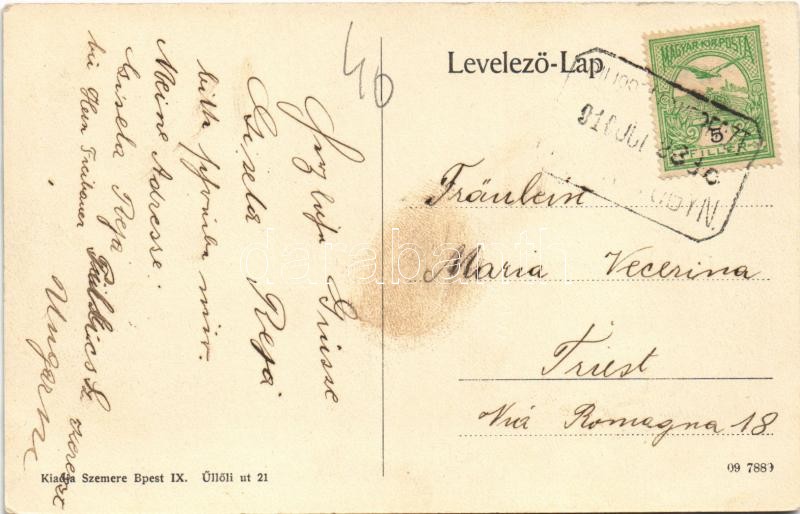 Levelező-Lap
40
MAGYAR KIR. POSTA
5
FILLER
910 JUL
Fräulein
Maria Vecerina
Triest
Viá Romagna 18
Herzliche Grüsse
Gisela Reja
bitte schreibe mir.
Meine Adresse.
Gisela Reja
bei Herr
Ungarn
Kiadja Szemere Bpest IX. Üllői ut 21
09 7889
darabanth